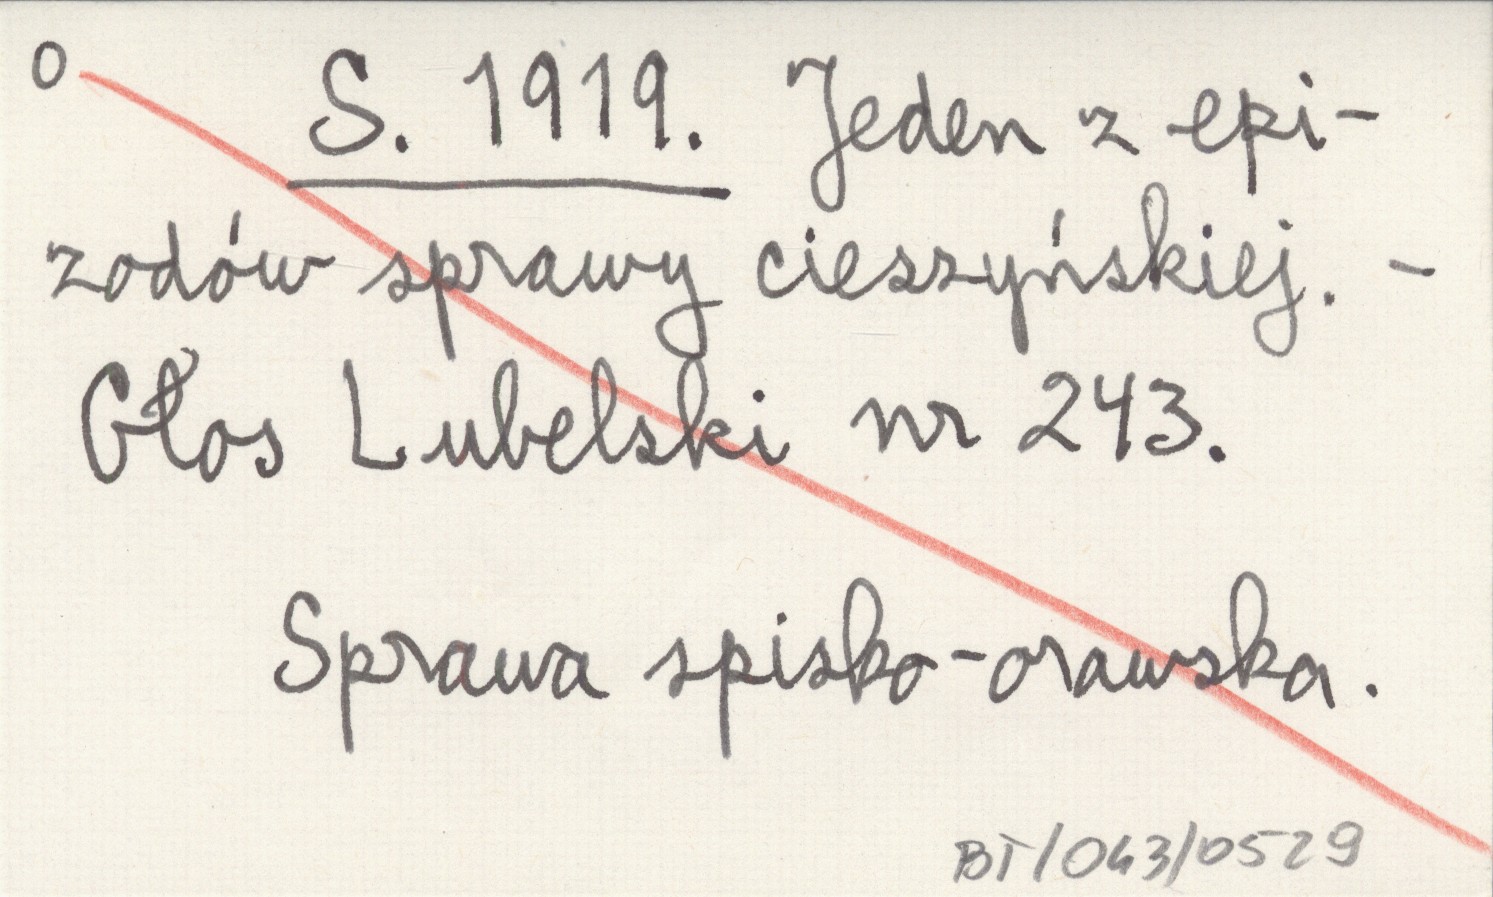 0 S. 1919. Jeden z epi-
zodów sprawy cieszyńskiej. -
Głos Lubelski nr 243.
Sprawa spisko-orawska.
BT/043/0529